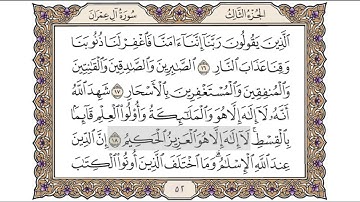 الجزء الثالث
سورة آل عمران
ٱلَّذِينَ يَقُولُونَ رَبَّنَآ إِنَّنَآ ءَامَنَّا فَٱغْفِرْ لَنَا ذُنُوبَنَا
وَقِنَا عَذَابَ ٱلنَّارِ ١٦ ٱلصَّـٰبِرِينَ وَٱلصَّـٰدِقِينَ وَٱلْقَـٰنِتِينَ
وَٱلْمُنفِقِينَ وَٱلْمُسْتَغْفِرِينَ بِٱلْأَسْحَارِ ١٧ شَهِدَ ٱللَّهُ
أَنَّهُۥ لَآ إِلَـٰهَ إِلَّا هُوَ وَٱلْمَلَـٰٓئِكَةُ وَأُو۟لُوا۟ ٱلْعِلْمِ قَآئِمًۢا
بِٱلْقِسْطِ ۚ لَآ إِلَـٰهَ إِلَّا هُوَ ٱلْعَزِيزُ ٱلْحَكِيمُ ١٨ إِنَّ ٱلدِّينَ
عِندَ ٱللَّهِ ٱلْإِسْلَـٰمُ ۗ وَمَا ٱخْتَلَفَ ٱلَّذِينَ أُوتُوا۟ ٱلْكِتَـٰبَ
٥٢